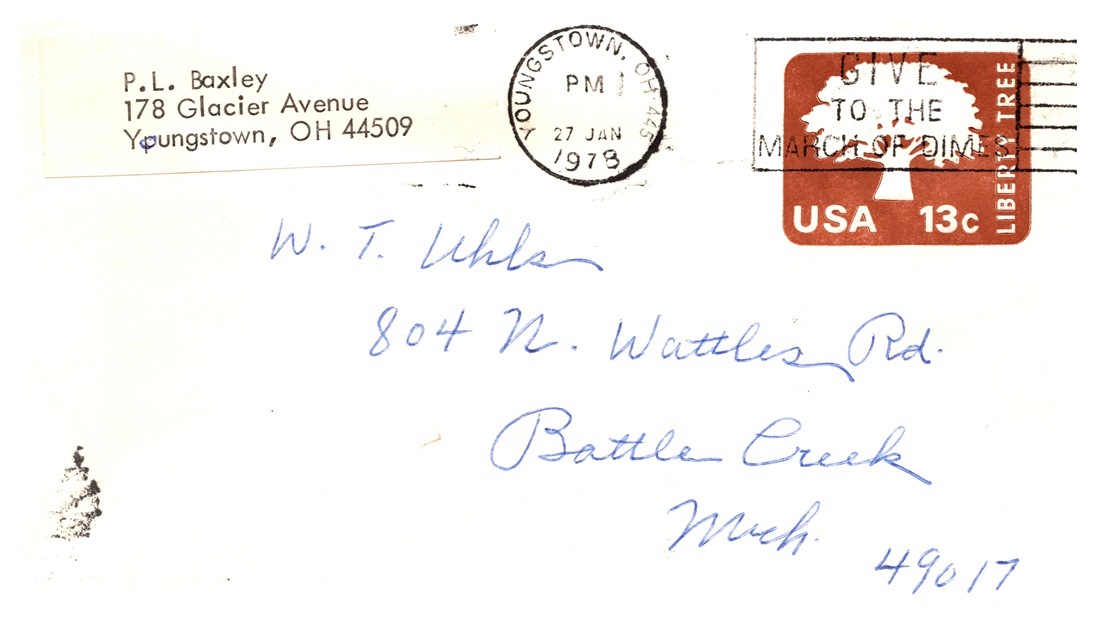 P.L. Baxley
178 Glacier Avenue
Youngstown, OH 44509
YOUNGSTOWN, OH 445
PM
27 JAN
1978
GIVE
TO THE
MARCH OF DIMES
LIBERTY TREE
USA 13c
W. T. Uhls
804 N. Wattles Rd.
Battle Creek
Mich.
49017